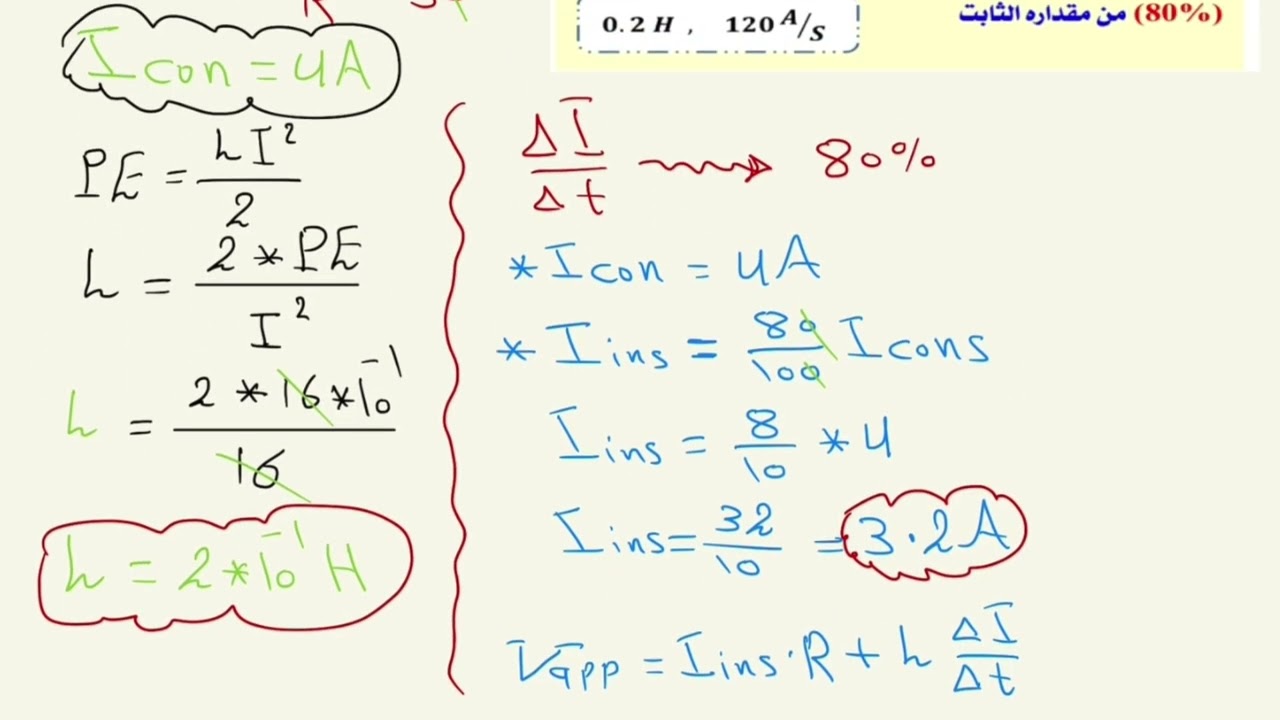 (80%) من مقداره الثابت
0.2 H , 120 A/S
I con = 4A
PE = LI² / 2
L = 2 * PE / I²
L = 2 * 16 * 10⁻¹ / 16
L = 2 * 10⁻¹ H
ΔI / Δt → 80%
* I con = 4A
* I ins = 80 / 100 I cons
I ins = 8 / 10 * 4
I ins = 32 / 10 = 3.2A
Vapp = I ins . R + L ΔI / Δt